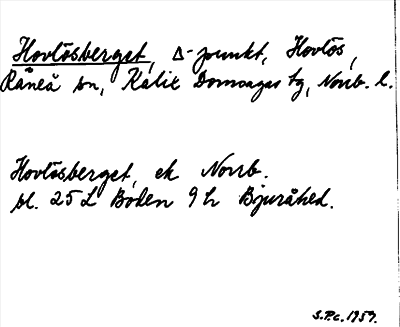 Hovlösberget, Δ-punkt, Hovlös,
Råneå sn, Kalix Domsagas tg, Norrb. l.
Hovlösberget, ek Norrb.
bl. 25 L Boden 9 h Bjuråhed.
S.P.c. 1959.